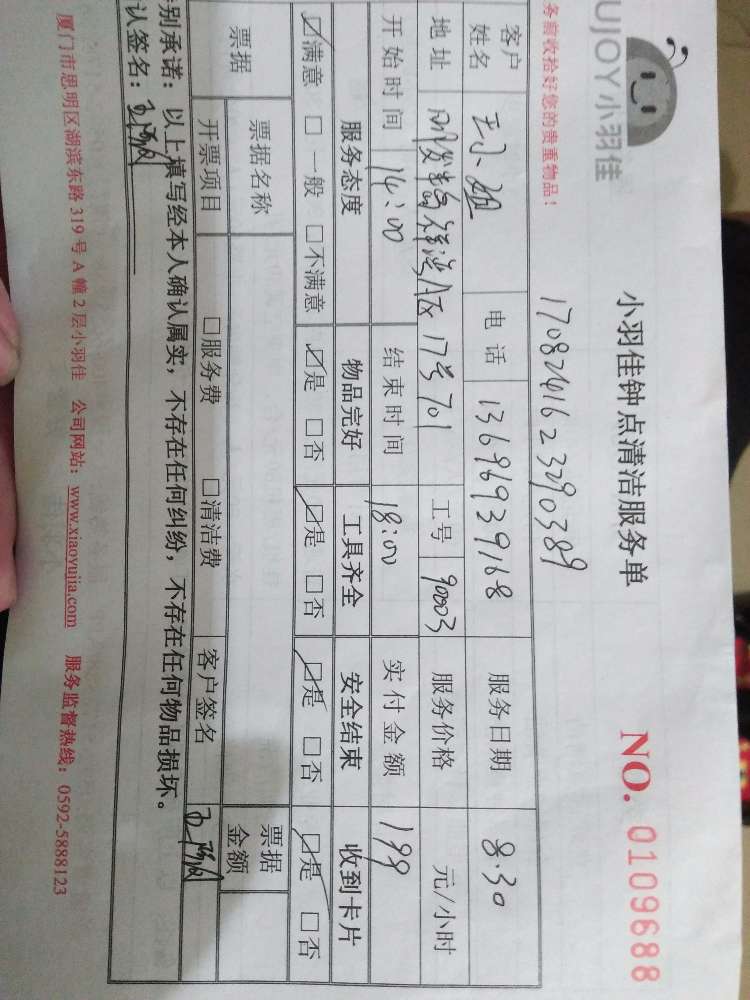 UJOY小羽佳
务前收拾好您的贵重物品！
小羽佳钟点清洁服务单
NO. 0109688
17082416233290389
客户姓名 王小姐 电话 13696939168 服务日期 8.30
地址 祥湾A区17号701 工号 90003 服务价格 元/小时
开始时间 14:00 结束时间 18:00 实付金额 199
服务态度 物品完好 工具齐全 安全结束 收到卡片
☑满意 □一般 □不满意 ☑是 □否 ☑是 □否 ☑是 □否 ☑是 □否
票据 票据名称 票据金额
开票项目 □服务费 □清洁费 客户签名
别承诺：以上填写经本人确认属实，不存在任何纠纷，不存在任何物品损坏。
认签名：
厦门市思明区湖滨东路 319 号 A 幢 2 层小羽佳 公司网站：www.xiaoyujia.com 服务监督热线：0592-5888123